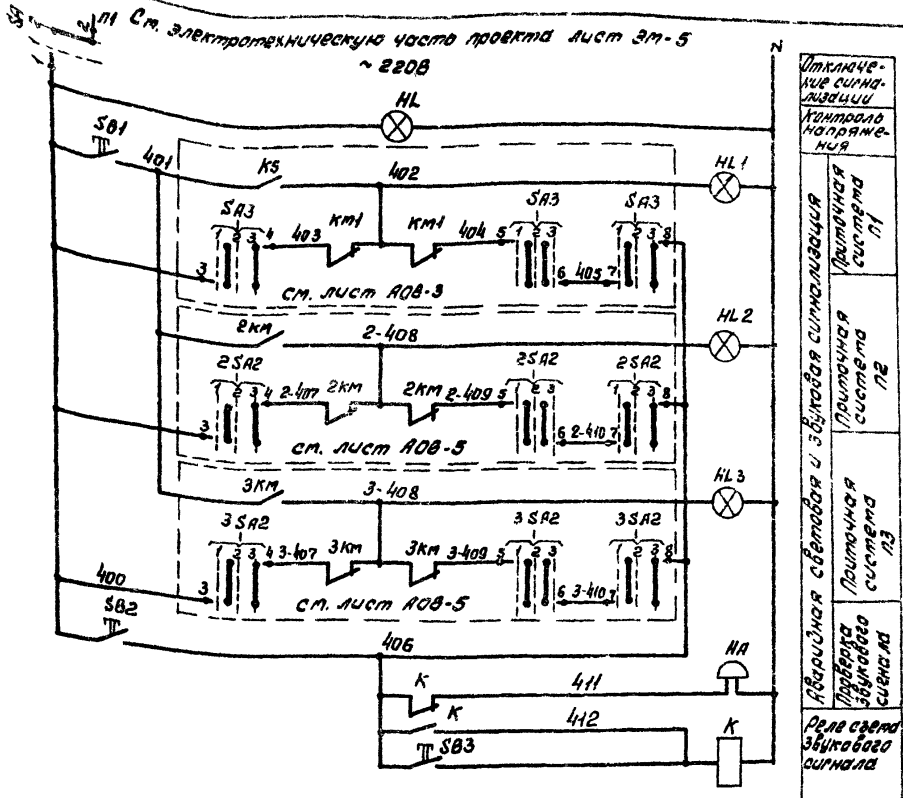 SA
2
П1 См. электротехническую часть проекта лист ЭМ-5
~ 220В
N
HL
SB1
401
K5
402
HL1
SA3
SA3
SA3
1 2 3 4 403 КМ1 КМ1 404 5 1 2 3 1 2 3 8
3
6 405 7
см. лист АОВ-3
2КМ
2-408
HL2
2SA2
2SA2
2SA2
1 2 3 4 2-407 2КМ 2КМ 2-409 5 1 2 3 1 2 3 8
3
6 2-410 7
см. лист АОВ-5
3КМ
3-408
HL3
3SA2
3SA2
3SA2
1 2 3 4 3-407 3КМ 3КМ 3-409 5 1 2 3 1 2 3 8
400
3
6 3-410 7
см. лист АОВ-5
SB2
406
HA
K
411
K
412
SB3
K
Отключе-
ние сигна-
лизации
Контроль
напряже-
ния
Аварийная световая и звуковая сигнализация
Приточная
система
П1
Приточная
система
П2
Приточная
система
П3
Проверка
звукового
сигнала
Реле съема
звукового
сигнала